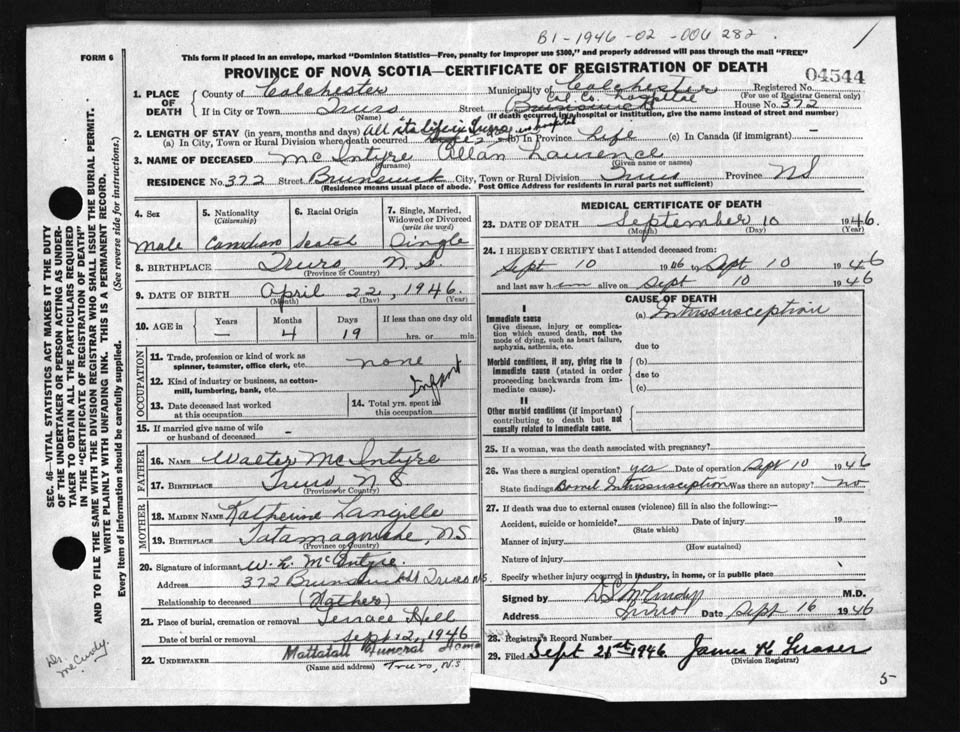 B1-1946-02-006282.
FORM 6
This form if placed in an envelope, marked "Dominion Statistics—Free, penalty for improper use $300," and properly addressed will pass through the mail "FREE"
PROVINCE OF NOVA SCOTIA—CERTIFICATE OF REGISTRATION OF DEATH
04544
1. PLACE OF DEATH
County of Colchester Municipality of Colchester Registered No.
(For use of Registrar General only)
Col. Co. Hospital
If in City or Town Truro Street Brunswick House No. 372
(Name) (If death occurred in a hospital or institution, give the name instead of street and number)
2. LENGTH OF STAY (in years, months and days) All its life in Truro
(a) In City, Town or Rural Division where death occurred (b) In Province Life (c) In Canada (if immigrant)
3. NAME OF DECEASED McIntyre Allan Laurence
(Surname) (Given name or names)
RESIDENCE No. 372 Street Brunswick City, Town or Rural Division Truro Province NS
(Residence means usual place of abode. Post Office Address for residents in rural parts not sufficient)
4. Sex
Male
5. Nationality
(Citizenship)
Canadian
6. Racial Origin
Scotch
7. Single, Married, Widowed or Divorced
(write the word)
Single
8. BIRTHPLACE Truro, N.S.
(Province or Country)
9. DATE OF BIRTH April 22, 1946.
(Month) (Day) (Year)
10. AGE in Years Months Days If less than one day old
— 4 19 hrs. or min.
OCCUPATION
11. Trade, profession or kind of work as spinner, teamster, office clerk, etc. none
12. Kind of industry or business, as cotton-mill, lumbering, bank, etc. Infant
13. Date deceased last worked at this occupation
14. Total yrs. spent in this occupation
15. If married give name of wife or husband of deceased —
FATHER
16. NAME Walter McIntyre
17. BIRTHPLACE Truro N S.
(Province or Country)
MOTHER
18. MAIDEN NAME Katherine Langille
19. BIRTHPLACE Tatamagouche, NS
(Province or Country)
20. Signature of informant W. L. McIntyre.
Address 372 Brunswick St Truro N.S.
Relationship to deceased (Father)
21. Place of burial, cremation or removal Terrace Hill
Date of burial or removal Sept 12, 1946
22. UNDERTAKER Mattatall Funeral Home
(Name and address) Truro, N.S.
MEDICAL CERTIFICATE OF DEATH
23. DATE OF DEATH September 10 1946.
(Month) (Day) (Year)
24. I HEREBY CERTIFY that I attended deceased from:
Sept 10 1946 to Sept 10 1946
and last saw him alive on Sept 10 1946
CAUSE OF DEATH
I
Immediate cause
Give disease, injury or complication which caused death, not the mode of dying, such as heart failure, asphyxia, asthenia, etc.
(a) Intussusception
due to
Morbid conditions, if any, giving rise to immediate cause (stated in order proceeding backwards from immediate cause).
(b)
due to
(c)
II
Other morbid conditions (if important) contributing to death but not causally related to immediate cause.
25. If a woman, was the death associated with pregnancy?
26. Was there a surgical operation? yes Date of operation Sept 10 1946
State findings Bowel Intussusception Was there an autopsy? No
27. If death was due to external causes (violence) fill in also the following:—
Accident, suicide or homicide? Date of injury 19
(State which)
Manner of injury
(How sustained)
Nature of injury
Specify whether injury occurred in industry, in home, or in public place
Signed by D S McCurdy M.D.
Address Truro Date Sept 16 1946
28. Registrar's Record Number
29. Filed Sept 21st 1946. James K Fraser
(Division Registrar)
5-
SEC. 46—VITAL STATISTICS ACT MAKES IT THE DUTY
OF THE UNDERTAKER OR PERSON ACTING AS UNDER-
TAKER TO OBTAIN ALL THE PARTICULARS REQUIRED
IN THE "CERTIFICATE OF REGISTRATION OF DEATH"
AND TO FILE THE SAME WITH THE DIVISION REGISTRAR WHO SHALL ISSUE THE BURIAL PERMIT.
WRITE PLAINLY WITH UNFADING INK. THIS IS A PERMANENT RECORD.
Every item of information should be carefully supplied. (See reverse side for instructions.)
Dr. McCurdy.